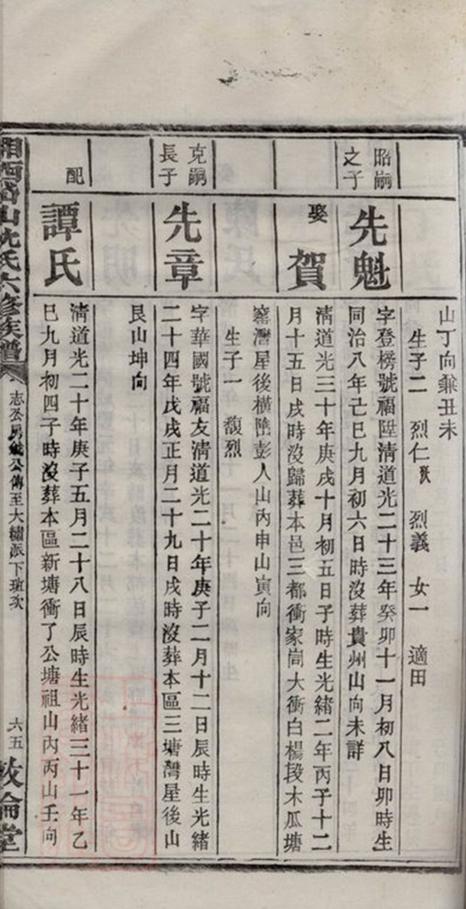 山丁向兼丑未
生子二 烈仁 烈義 女一 適田
昭嗣之子
先魁
字登榜號福陞清道光二十三年癸卯十一月初八日卯時生
同治八年己巳九月初六日時沒葬貴州山向未詳
娶
賀
清道光三十年庚戌十月初五日子時生光緒二年丙子十二
月十五日戌時沒歸葬本邑三都衝家崗大衝白楊段木瓜塘
窰灣屋後橫墈彭人山內申山寅向
生子一 馥烈
克嗣長子
先章
字華國號福友清道光二十年庚子二月十二日辰時生光緒
二十四年戊戌正月二十九日戌時沒葬本區三塘灣屋後山
艮山坤向
配
譚氏
清道光二十年庚子五月二十八日辰時生光緒三十一年乙
巳九月初四子時沒葬本區新塘衝了公塘祖山內丙山壬向
湘西沈氏六修族譜
志 公傳至大繡派下 次
六五
敦倫堂